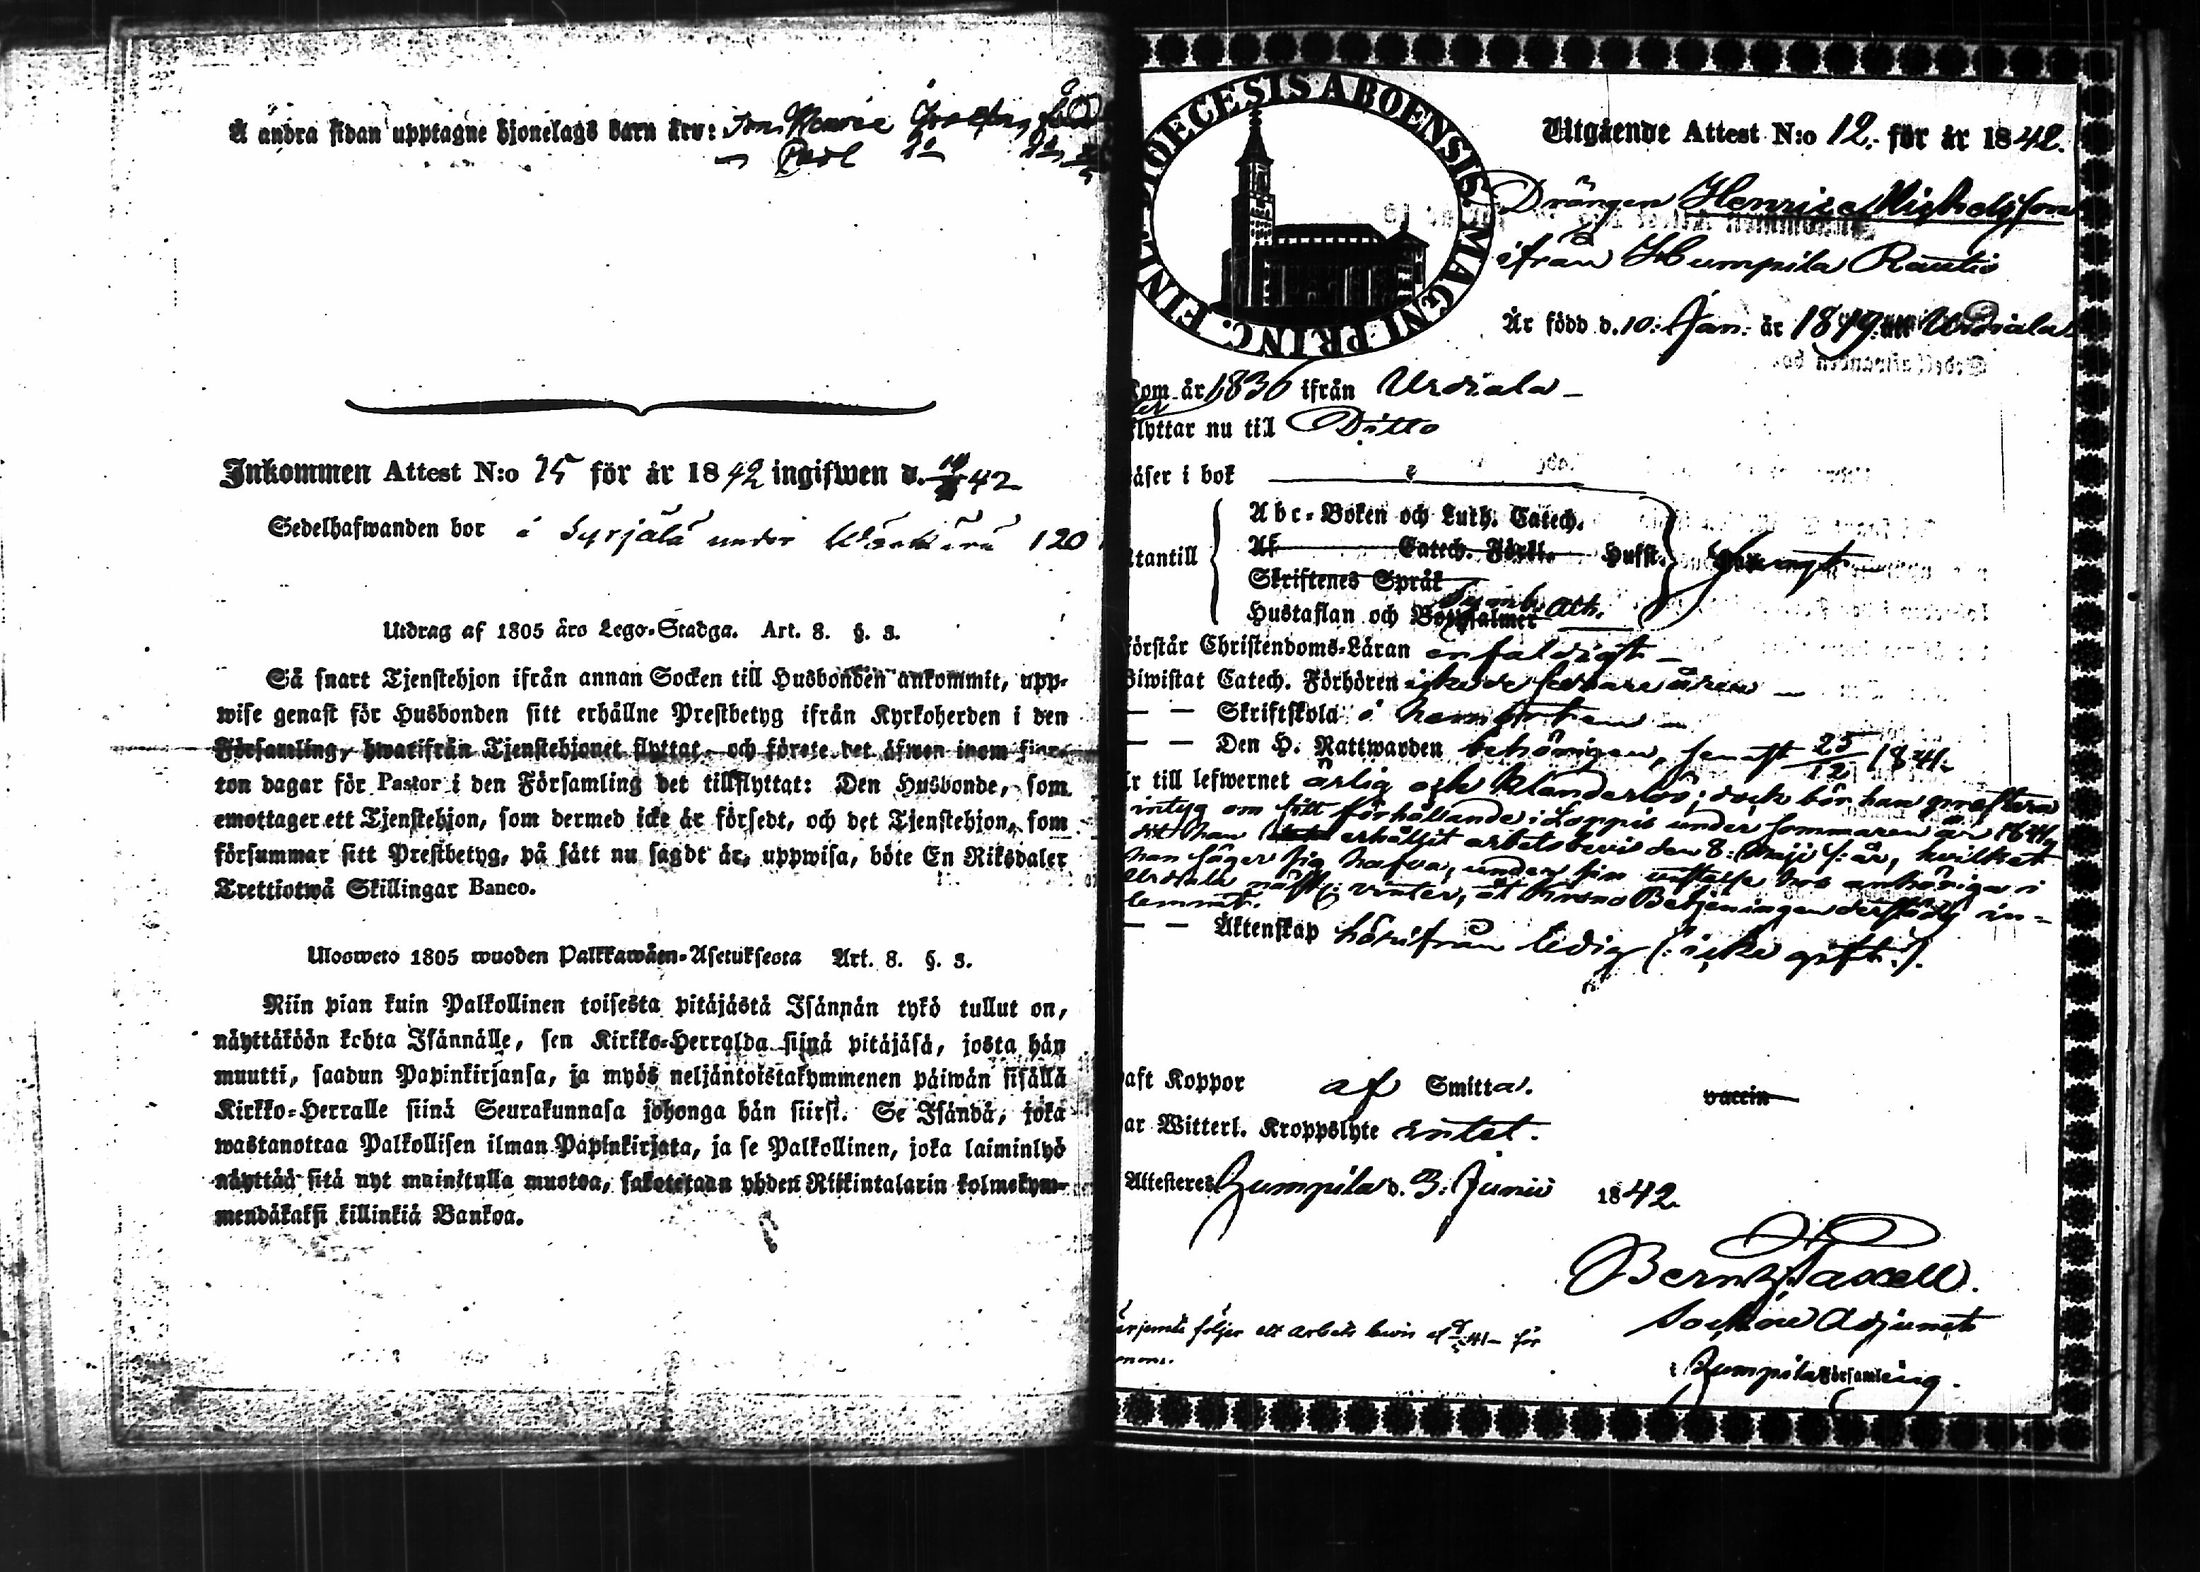 Å andra sidan upptagne hjonelags barn äro: Son Henric
Inkommen Attest N:o 75 för år 1842 ingifwen d. 42
Sedelhafwanden bor i Syrjälä under 120
Utdrag af 1805 års Lego-Stadga. Art. 8. §. 3.
Så snart Tjenstehjon ifrån annan Socken till Husbonden ankommit, upp-
wise genast för Husbonden sitt erhållne Prestbetyg ifrån Kyrkoherden i den
Församling, hwarifrån Tjenstehjonet flyttat, och förete det äfwen inom fjor-
ton dagar för Pastor i den Församling det tillflyttat: Den Husbonde, som
emottager ett Tjenstehjon, som dermed icke är försedt, och det Tjenstehjon, som
försummar sitt Prestbetyg, på sätt nu sagdt är, uppwisa, böte En Riksdaler
Trettiotwå Skillingar Banco.
Ulosweto 1805 wuoden Palkkawäen-Asetuksesta Art. 8. §. 3.
Niin pian kuin Palkollinen toisesta pitäjästä Isännän tykö tullut on,
näyttäköön kohta Isännälle, sen Kirkko-Herralda siinä pitäjäsä, josta hän
muutti, saadun Papinkirjansa, ja myös neljäntoistakymmenen päiwän sisällä
Kirkko-Herralle siinä Seurakunnasa johonga hän siirsi. Se Isändä, joka
wastanottaa Palkollisen ilman Papinkirjata, ja se Palkollinen, joka laiminlyö
näyttää sitä nyt mainitulla muotoa, sakotetaan yhden Riikintalarin kolmekym-
mendäkaksi killinkiä Bankoa.
DIOECESIS ABOENSIS MAGNI PRINC. FINL.
Utgående Attest N:o 12. för år 1842.
Drängen Henric Michelsson
ifrån Humpila Rautio
Är född d. 10: Jan: år 1819. att Urdiala
Kom år 1836 ifrån Urdiala –
flyttar nu til Ditto
Läser i bok
Abc-Boken och Luth. Catech.
Af Catech. Förkl. Husst.
Utantill
Skriftenes Språk
Hustaflan och Botpsalmer Symb. Ath.
Förstår Christendoms-Läran enfaldigt –
Biwistat Catech. Förhören icke de senare åren –
— — Skriftskola i barndomen –
— — Den H. Nattwarden behörigen, senast 25/12 1841.
Är till lefwernet ärlig och klanderlös; dock bör han
intyg om sitt förhållande i Loppis under sommaren år 1841,
dit han erhållit arbetsbevis den 8: Maji s. år, hvilket
han säger sig hafva, under sin vistelse hos anhöriga i
Urdiala näst. vinter, åt Krono Betjeningen derstädes in-
lemnat.
— — Äktenskap härifrån ledig (: icke gift :).
Haft Koppor af Smitta. vaccin
Har Witterl. Kroppslyte intet.
Attesteres Humpila d. 3: Junii 1842.
Bernh. Taxell.
Sockne Adjunct
i Humpila Församling.
följer ett arbets bevis af 41 – för